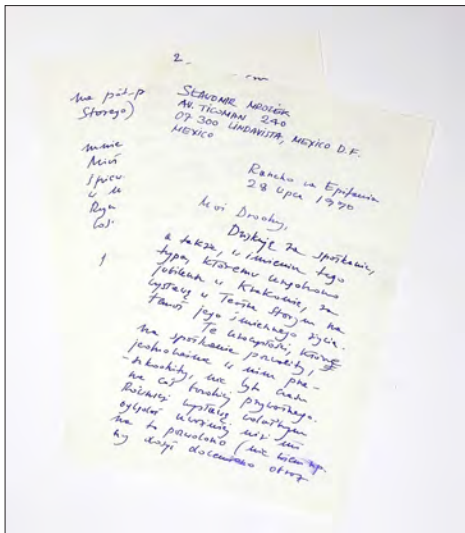 2.
na pół-p
Starego)
mnie
Miś
i
Ryn
coś
SŁAWOMIR MROŻEK
AV. TICOMAN 240
07300 LINDAVISTA, MEXICO D.F.
MEXICO
Rancho La Epifania
28 lipca 1990
Moi Drodzy,
Dziękuję za spotkanie,
a także, w imieniu tego
typa, któremu urządzono
jubileusz w Krakowie, za
wystawę w Teatrze Starym na
temat jego śmiesznego życia.
Te uroczystości, które
na spotkanie pozwoliły,
jednocześnie w nim prze-
-szkodziły, nie było czasu
na coś bardziej prywatnego.
Również wystawę wolałbym
oglądać uważniej niż mi
na to pozwolono (nie wiem np.
czy dosyć doceniono obraz